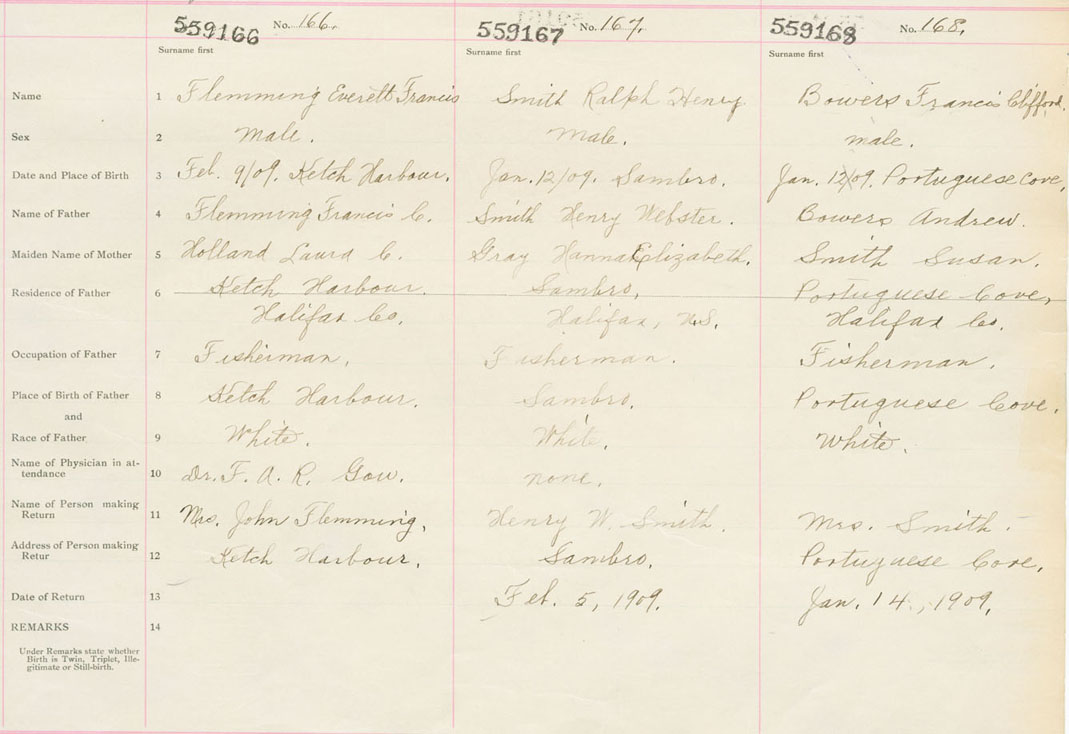 559166 No. 166. 559167 No. 167. 559168 No. 168.
Surname first Surname first Surname first
Name 1 Flemming Everett Francis Smith Ralph Henry Bowers Francis Clifford.
Sex 2 male. male. male.
Date and Place of Birth 3 Feb. 9/09. Ketch Harbour. Jan. 12/09. Sambro. Jan. 12/09. Portuguese Cove,
Name of Father 4 Flemming Francis C. Smith Henry Webster. Bowers Andrew.
Maiden Name of Mother 5 Holland Laura C. Gray Hannah Elizabeth. Smith Susan.
Residence of Father 6 Ketch Harbour. Sambro, Portuguese Cove,
Halifax Co. Halifax, N.S. Halifax Co.
Occupation of Father 7 Fisherman, Fisherman. Fisherman.
Place of Birth of Father 8 Ketch Harbour. Sambro. Portuguese Cove.
and
Race of Father 9 White. White. White.
Name of Physician in at-
tendance 10 Dr. F. A. R. Gow. none.
Name of Person making
Return 11 Mrs. John Flemming, Henry W. Smith. Mrs. Smith.
Address of Person making
Retur 12 Ketch Harbour. Sambro. Portuguese Cove.
Date of Return 13 Feb. 5, 1909. Jan. 14, 1909.
REMARKS 14
Under Remarks state whether
Birth is Twin, Triplet, Ille-
gitimate or Still-birth.